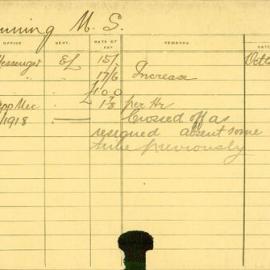 unning M. S.
OFFICE DEPT. DATE OF PAY REMARKS DATE
essenger E/L 15/- Octo
" " 17/6 Increase
£1.0.0
app Mec £ 1/3 per Hr
1918 Crossed off as
resigned absent some
time previously